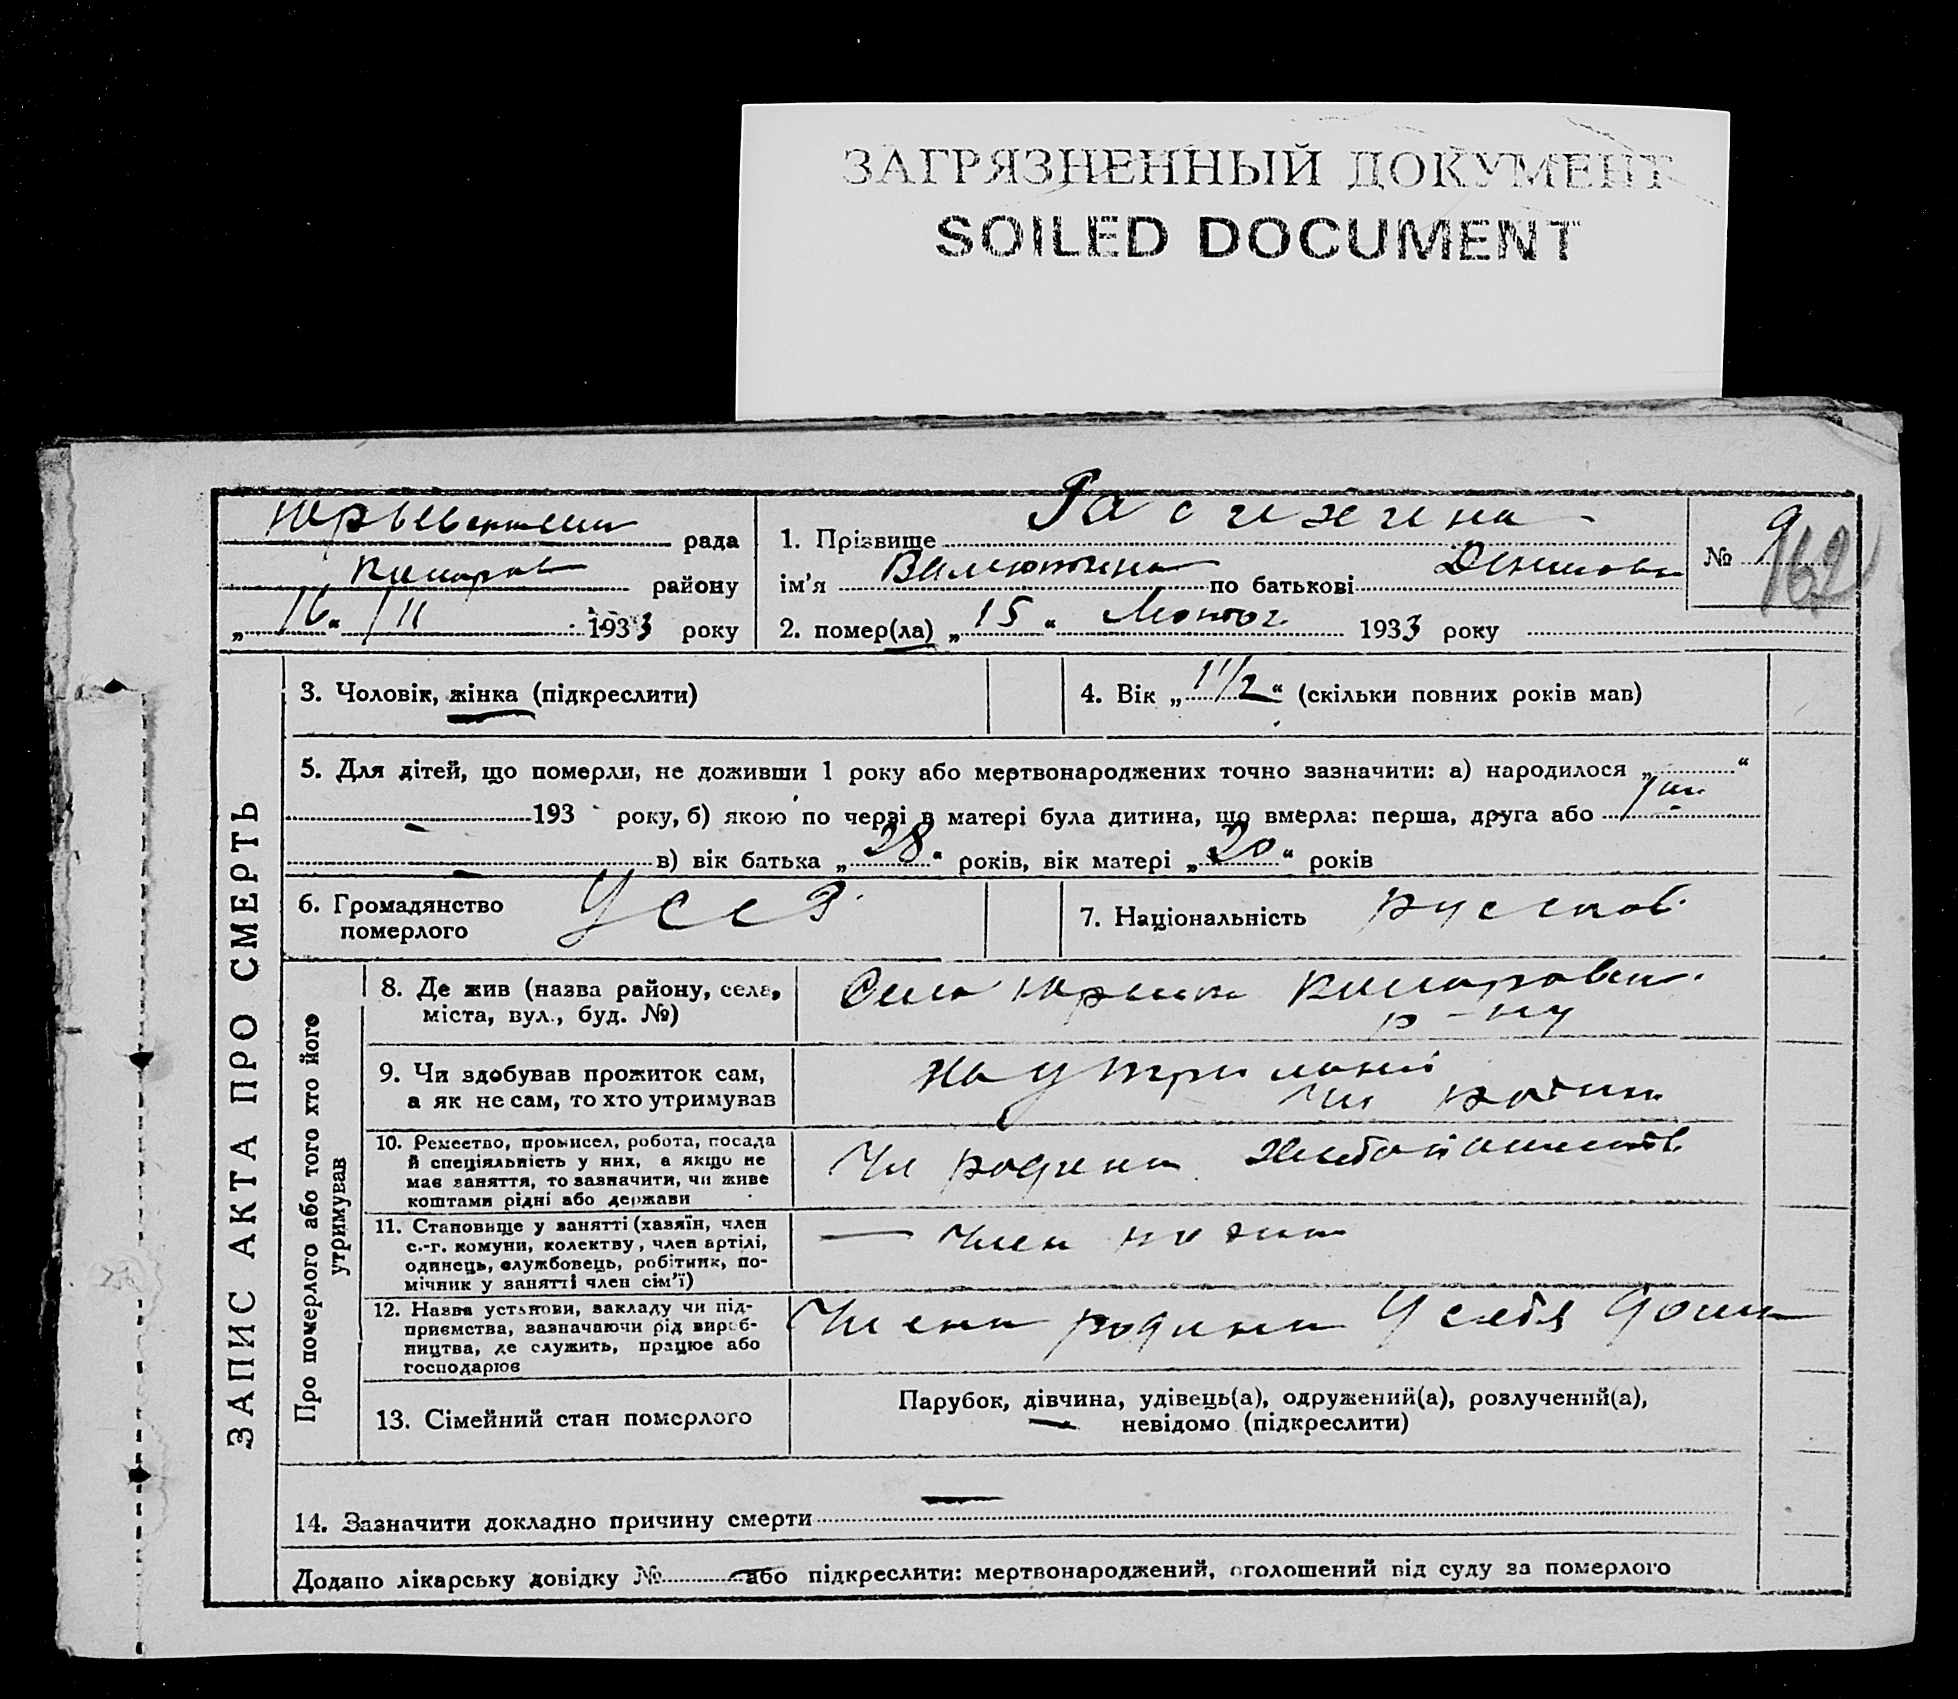 ЗАГРЯЗНЕННЫЙ ДОКУМЕНТ
SOILED DOCUMENT
рада
району
„16“ /II 1933 року
1. Прізвище
ім'я Валентина по батькові Денисовн
2. помер(ла) „15“ Лютог 1933 року
№ 9
162
ЗАПИС АКТА ПРО СМЕРТЬ
3. Чоловік, жінка (підкреслити)
4. Вік „1 1/2“ (скільки повних років мав)
5. Для дітей, що померли, не доживши 1 року або мертвонароджених точно зазначити: а) народилося „ “
193 року, б) якою по черзі в матері була дитина, що вмерла: перша, друга або
в) вік батька „28“ років, вік матері „20“ років
6. Громадянство
померлого
УССР
7. Національність
Про померлого або того хто його
утримував
8. Де жив (назва району, села,
міста, вул., буд. №)
р-ну
9. Чи здобував прожиток сам,
а як не сам, то хто утримував
на утриманні
10. Ремество, промисел, робота, посада
й спеціяльність у них, а якщо не
має заняття, то зазначити, чи живе
коштами рідні або держави
Чл родини
11. Становище у занятті (хазяїн, член
с.-г. комуни, колектву, член артілі,
одинець, службовець, робітник, по-
мічник у занятті член сім'ї)
— член
12. Назва установи, закладу чи під-
приємства, зазначаючи рід вироб-
ництва, де служить, працює або
господарює
Члена родини У себя дома
13. Сімейний стан померлого
Парубок, дівчина, удівець(а), одружений(а), розлучений(а),
невідомо (підкреслити)
14. Зазначити докладно причину смерти —
Додано лікарську довідку № або підкреслити: мертвонароджений, оголошений від суду за померлого